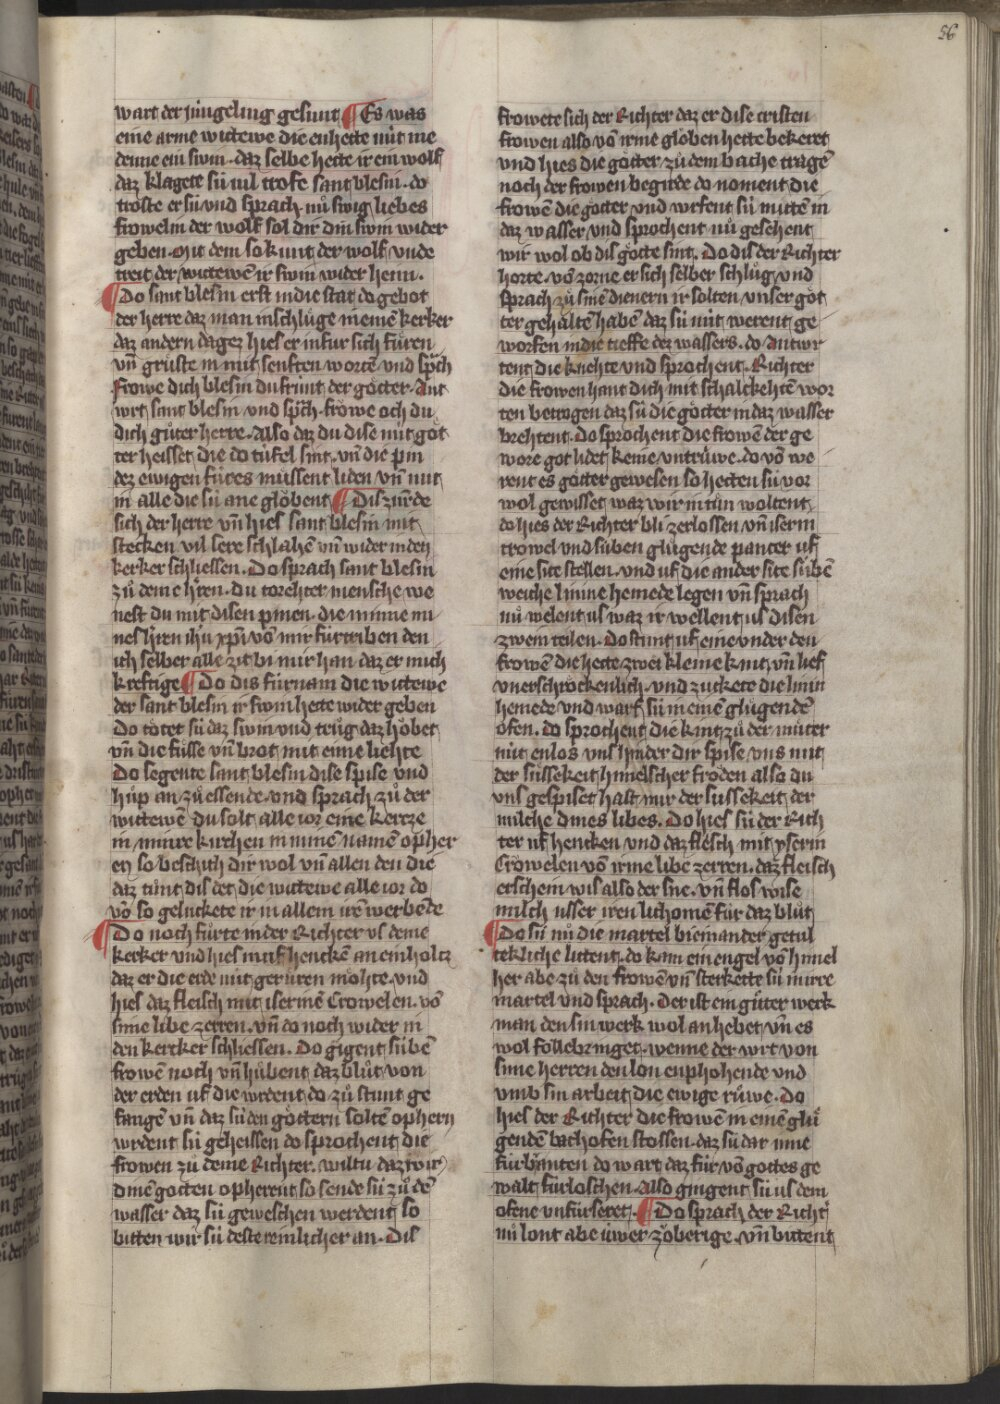 56
wart der jüngeling gesunt ¶ Es was
eine arme wittewe die enhette nüt me
denne ein swin. daz selbe hette ir ein wolf
daz klagete sü uil trofe sant blesin. do
troste er sü vnd sprach. nů swig liebes
frowelin der wolf sol dir din swin wider
geben. Mit dem so kunt der wolf vnde
treit der wittewē ir swin wider hein.
¶ Do sant blesin erst in die stat do gebot
der herre daz man in schlůge in eine kerker
daz andern dagez hies er in fur sich fůren
vn̄ grůste in mit senften wortē vnd spͣch
Frowe dich blesin du frünt der götter. Ant
wrt sant blesin vnd spͣch. frowe och du
dich gůter herre. Also daz du dise nüt göt
ter heisset die do tüfel sint. vn̄ die pin
dez ewigen füres müssent liden vn̄ mit
in alle die sü ane glöbent ¶ Dis zurnde
sich der herre vn̄ hies sant blesin mit
stecken vil sere schlahē vn̄ wider in den
kerker schliessen. Do sprach sant blesin
zů deme h̄ren. du torehter mensche we
nest du mit disen pinen. die minne mi
nes h̄ren ih̄u xp̄i vō mir fürtriben den
ich selber alle zit bi mir han daz er mich
kreftige ¶ Do dis fürnam die wittewe
der sant blesin ir swin hette wider geben
Do totet sü daz swin vnd trůg daz höbet
vn̄ die füsse vn̄ brot mit eime liehte
Do segente sant blesin dise spise vnd
hůp an zů essende. vnd sprach zů der
wittewē du solt alle ior eine kertze
in minre kirchen in minē namē opher
en so beschiht dir wol vn̄ allen den die
daz tůnt dis det die wittewe alle ior do
vō so geluckete ir in allem irē werbende
¶ Do noch fůrte in der Richter vs deme
kerker vnd hies in uf henckē an ein holtz
daz er die erde nüt gerůren möhte. vnd
hies daz fleisch mit isernīe Crowelen. vō
sime libe zerren. vn̄ do noch wider in
den kercker schliessen. Do gigent sübē
frowē noch vn̄ hůbent daz blůt von
der erden uf die wrdent do zů stunt ge
fangē vn̄ daz sü den göttern soltē ophern
wrdent sü geheissen do sprochent die
frowen zů deme Richter. wiltu daz wir
dinē gotten opherent so sende sü zů dē
wasser daz sü geweschen werdent so
bitten wir sü deste reinlicher an. Dis
frowete sich der Richter daz er dise cristen
frowen also vō irme glöben hette bekeret
vnd hies die götter zů dem bache tragē
noch der frowen begirde do noment die
frowē die götter vnd wrfent sü mittē in
daz wasser vnd sprochent nů gesehent
wir wol ob dis götte sint. Do dis der Richter
horte. vō zorne er sich selber schlůg vnd
sprach zů sinē dienern ir solten vnser göt
ter gehaltē habē daz sü nüt werent ge
worfen in die tieffe dez wassers. do antwr
tent die knehte vnd sprochent. Richter
die frowen hant dich mit schalckehtē wor
ten betrogen daz sü die götter in daz wasser
brehtent. Do sprochent die frowē der ge
wore got lidet keine vntrüwe. do vō we
rent es götter gewesen so hetten sü vor
wol gewisset waz wir in tůn woltent
do hies der Richter bli zerlossen vn̄ iserin
crowel vnd süben glügende panter uf
eine site stellen. vnd uf die ander site sübē
weiche linine hemede legen vn̄ sprach
nů welent us waz ir wellent us disen
zwein teilen. Do stunt uf eine vnder den
frowē die hette zwei kleine kint vn̄ lief
vnerschrockenlich. vnd zuckete die linin
hemede vnd warf sü in einē glügendē
ofen. do sprochent die kint zů der můter
nüt enlos vns hinder dir spise vns mit
der süssekeit himelscher fröden also du
vns gespiset hast mir der süssekeit der
milche dines libes. Do hies sü der Rich
ter uf hencken vnd daz fleisch mit yserin
Crowelen vō irme libe zerren. daz fleisch
erschein wis also der sne. vn̄ flos wise
milch usser iren lichomē für daz blůt
¶ Do sü nů die martel bi einander getul
tekliche littent. do kam ein engel vō himel
her abe zů den frowē vn̄ sterkette sü in irre
martel vnd sprach. Der ist ein gůter werk
man den sin werk wol anhebet vn̄ es
wol follebringet. wenne der wrt von
sime herren den lon enphohende vnd
vmb sin arbeit die ewige růwe. Do
hies der Richter die frowē in einē glů
gendē bachofen stossen. daz sü dar inne
fürbrantē do wart daz für vō gottes ge
walt fürloschen. Also gingent sü us dem
ofene vnfürseret. ¶ Do sprach der Richtͨ
nů lont abe üwer zöberige. vn̄ bittent